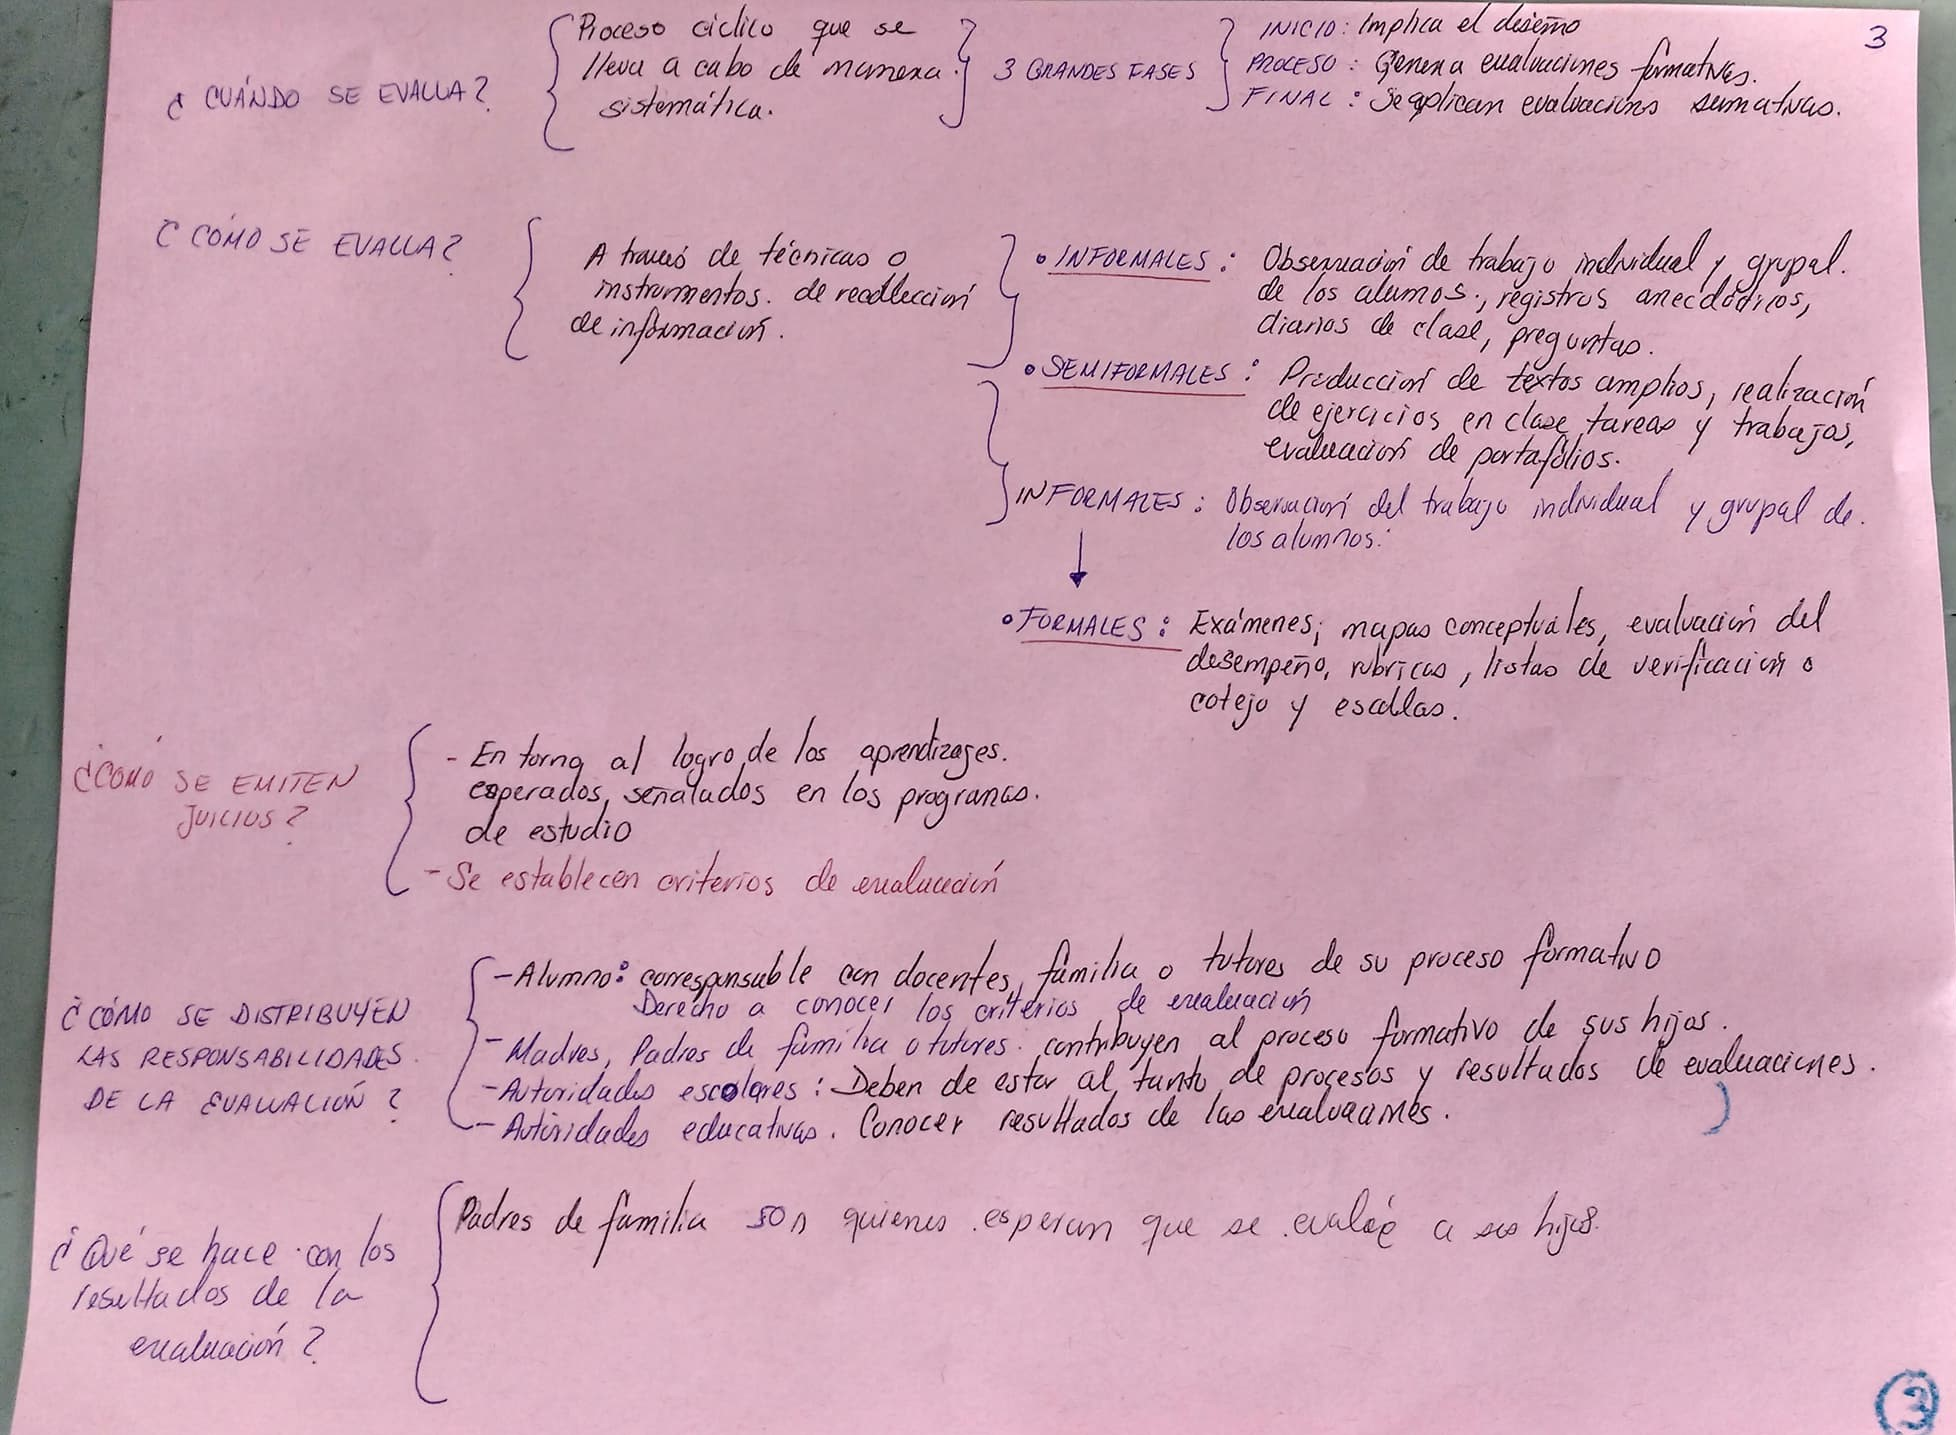 3
¿CUÁNDO SE EVALUA?
Proceso cíclico que se
lleva a cabo de manera
sistemática.
3 GRANDES FASES
INICIO: Implica el diseño
PROCESO: Genera evaluaciones formativas.
FINAL: Se aplican evaluaciones sumativas.
¿CÓMO SE EVALUA?
A través de técnicas o
instrumentos. de recolección
de información.
• INFORMALES: Observación de trabajo individual y grupal.
de los alumos., registros anecdóticos,
diarios de clase, preguntas.
• SEMIFORMALES: Producción de textos amplios, realización
de ejercicios en clase, tareas y trabajos,
evaluación de portafolios.
INFORMALES: Observación del trabajo individual y grupal de.
los alumnos.
• FORMALES: Exámenes, mapas conceptuales, evaluación del
desempeño, rubricas, listas de verificación o
cotejo y escalas.
¿CÓMO SE EMITEN
JUICIOS?
- En torno al logro de los aprendizajes.
esperados, señalados en los programas.
de estudio
- Se establecen criterios de evaluación
¿CÓMO SE DISTRIBUYEN
LAS RESPONSABILIDADES.
DE LA EVALUACIÓN?
- Alumno: corresponsable con docentes, familia o tutores de su proceso formativo
Derecho a conocer los criterios de evaluación
- Madres, Padres de familia o tutores. contribuyen al proceso formativo de sus hijos.
- Autoridades escolares: Deben de estar al tanto de procesos y resultados de evaluaciones.
- Autoridades educativas. Conocer resultados de las evaluaciones.
¿Qué se hace con los
resultados de la
evaluación?
Padres de familia son quienes esperan que se evalúe a sus hijos.
3